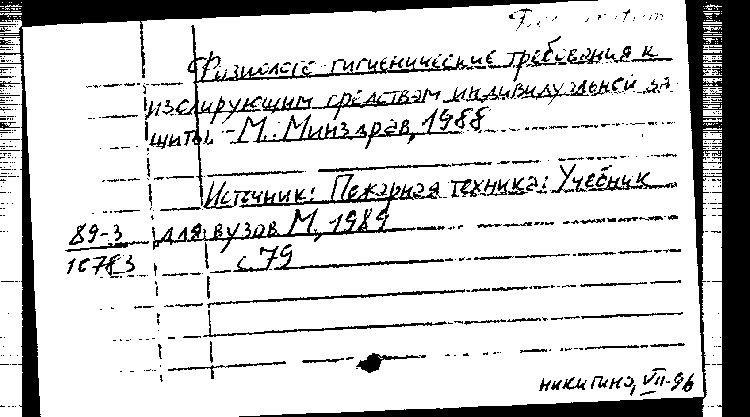 Физиолого-гигиенические требования к
изолирующим средствам индивидуальной за-
щиты - М.: Минздрав, 1988
Источник: Пожарная техника: Учебник
89-3 для вузов М., 1989
10783 с.79
никитина, VII-96